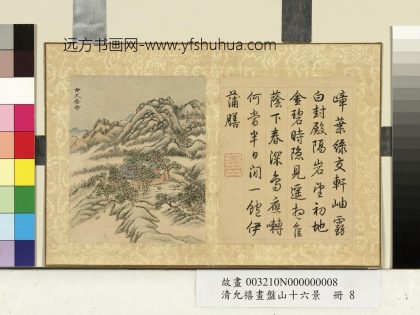 远方书画网-www.yfshuhua.com
葉綠交軒岫靄
白封殿陽岩望初地
金碧時隱見遙
蔭下春深鳥夜囀
何當半日閒一飽伊
蒲膳
故畫 003210N000000008
清允禧畫盤山十六景 冊 8